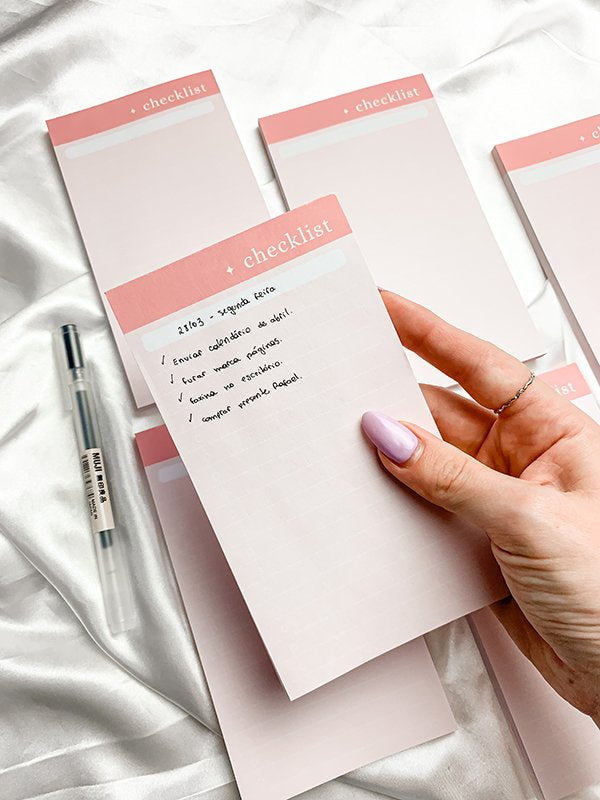 ✦ checklist
✦ checklist
✦ c
✦ checklist
28/03 - segunda feira
✓ Enviar calendário de abril.
✓ furar marca páginas.
✓ faxina no escritório.
✓ comprar presente Rafael.
klist
MUJI 無印良品
MADE IN